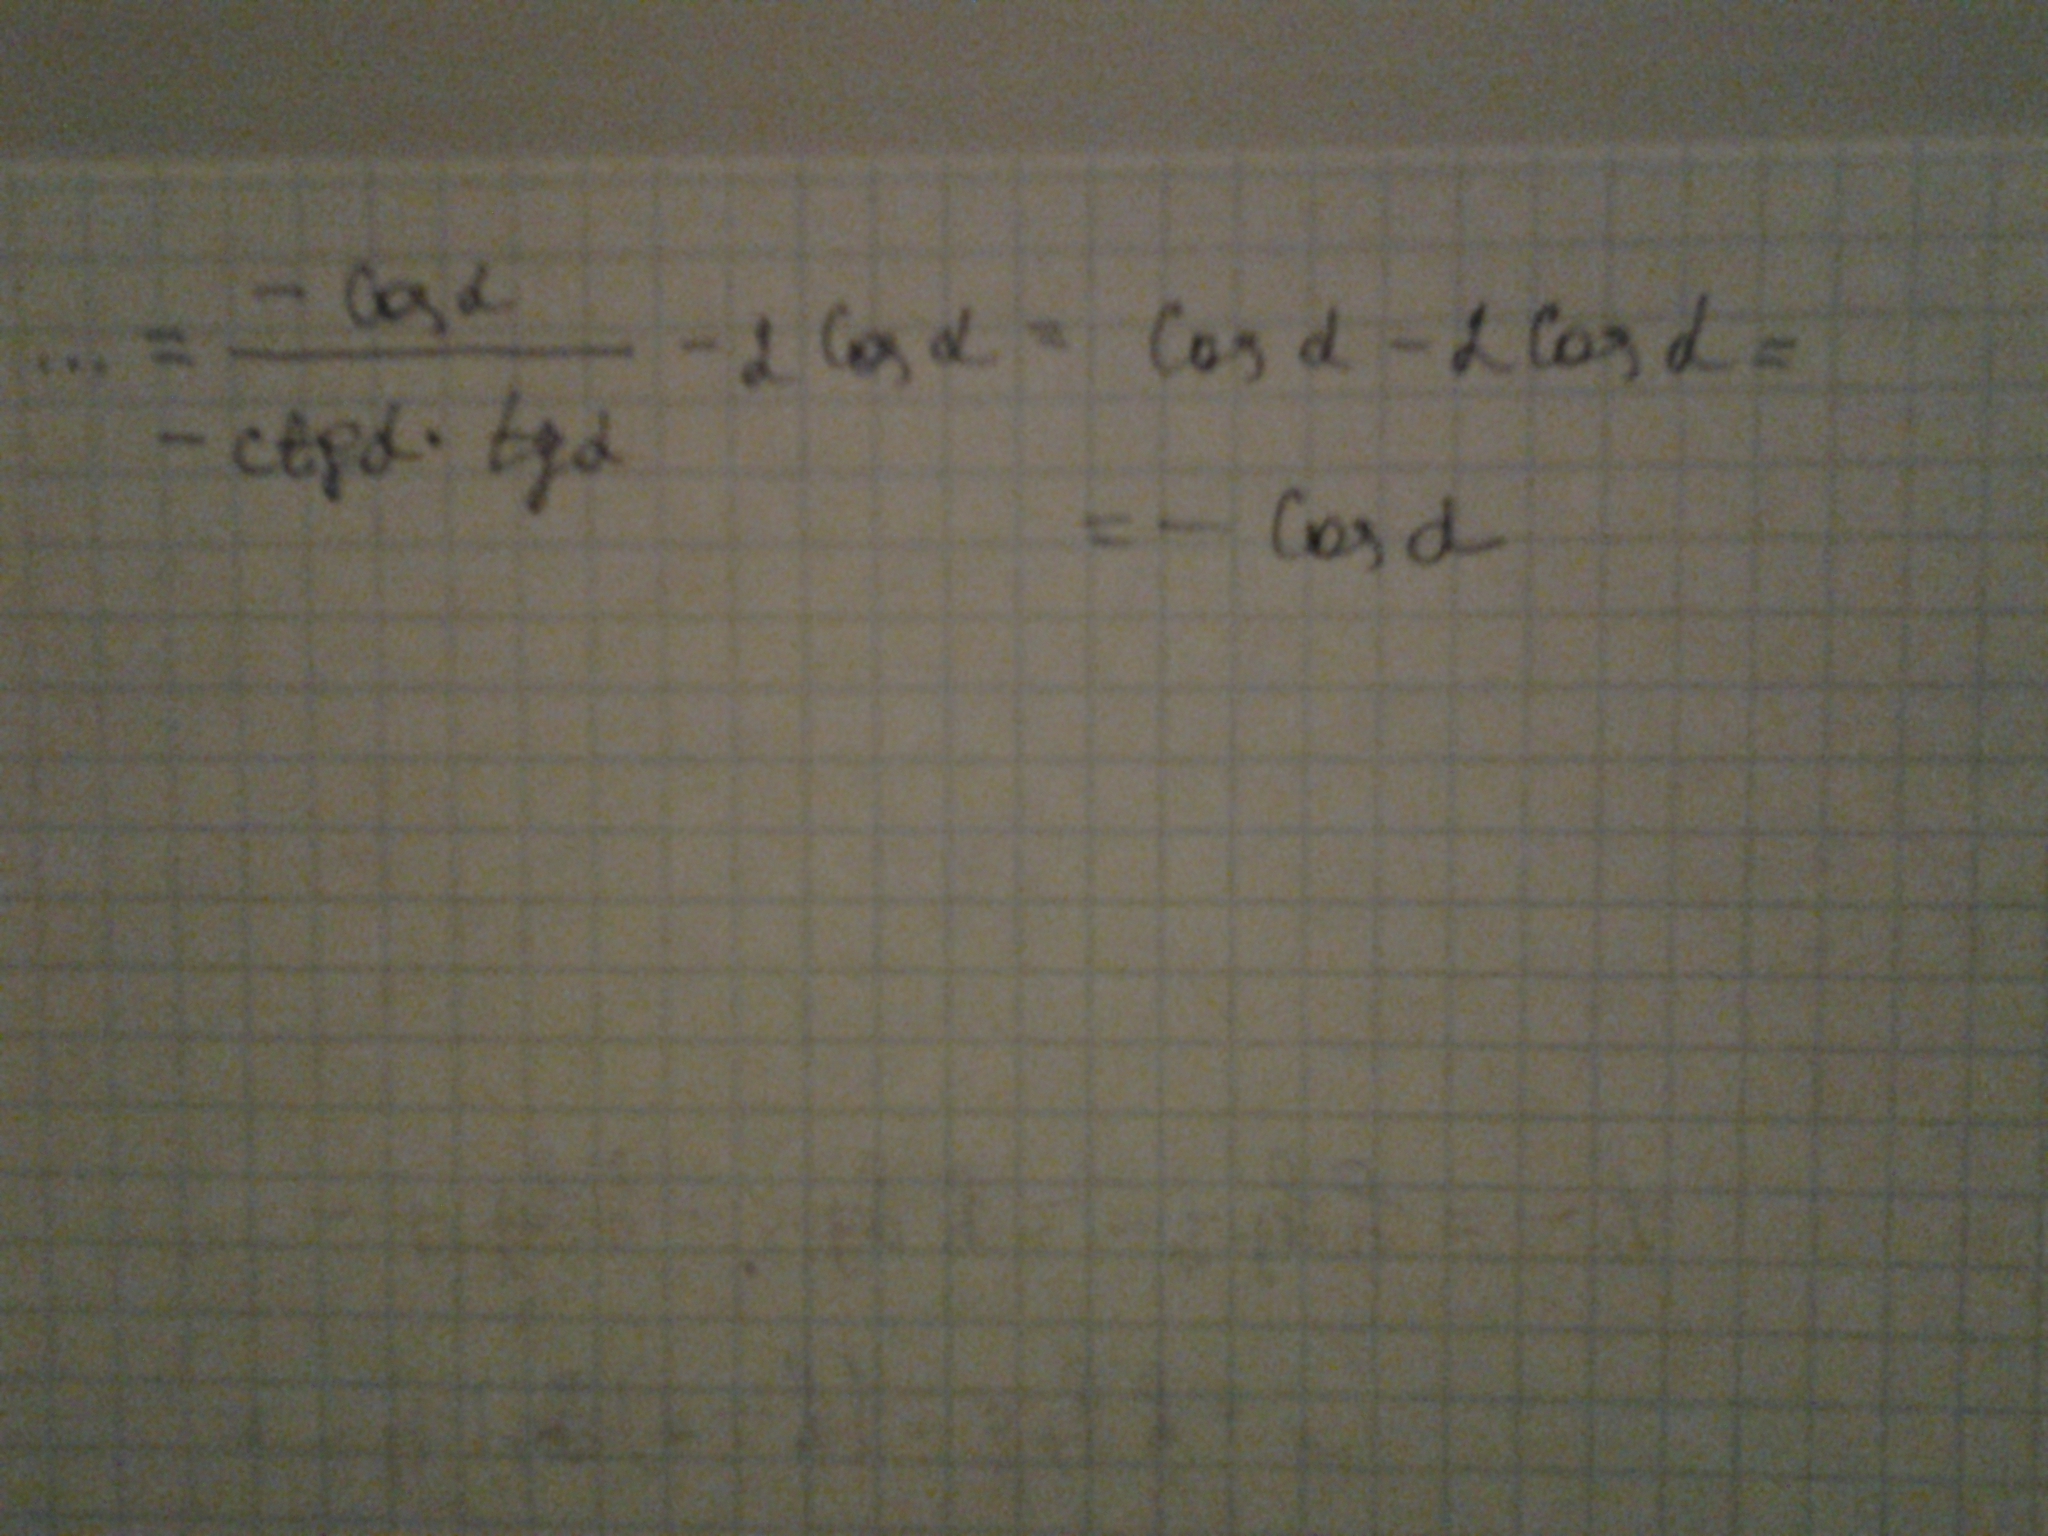 ... = - cos α / - ctg α · tg α - 2 cos α = cos α - 2 cos α =
= - cos α